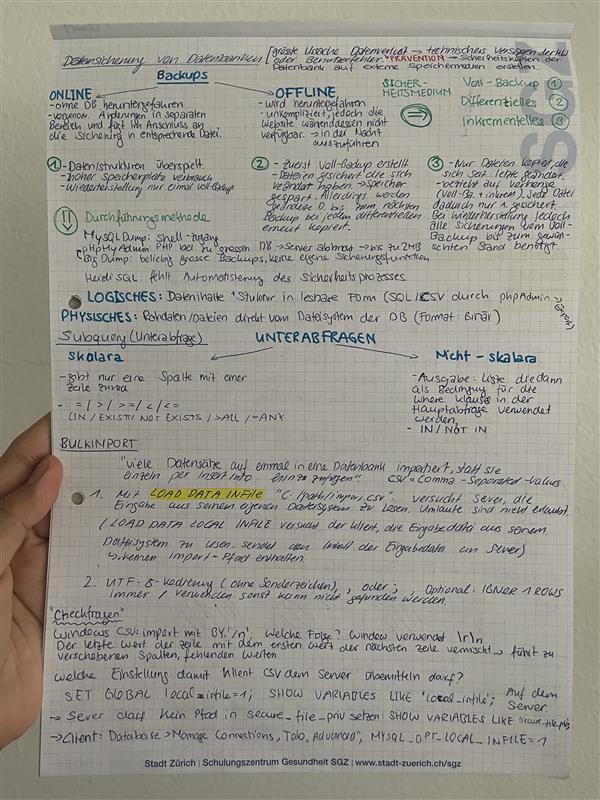 Datensicherung von Datenbanken [grösste Ursache Datenverlust → technisches Versagen der HW
oder Benutzerfehler. *PRÄVENTION → Sicherheitskopien der
Datenbank auf externe Speichermedien erstellen.
Backups
ONLINE
- ohne DB herunterfahren
- Änderungen in separaten
Bereich und fügt im Anschluss an
die Sicherung in entsprechende Datei.
OFFLINE
- wird heruntergefahren
- unkompliziert, jedoch die
Website währenddessen nicht
verfügbar. → in der Nacht
auszuführen
SICHER-
HEITSMEDIUM
⇒
Voll-Backup 1
Differenzielles 2
Inkrementelles 3
1 - Daten/strukturen überspielt.
- hoher Speicherplatz verbrauch
- Wiederherstellung nur einmal Voll-Backup
2 - zuerst Voll-Backup erstellt
- Dateien gesichert die sich
verändert haben. → Speicher
gespart. Allerdings werden
geänderte D. bis zum nächsten
Backup bei jedem differentiellen
erneut kopiert.
3 - Nur Dateien kopiert, die
sich seit letzte geändert.
(Voll-Ba. + inkrem), jede Datei
dadurch nur 1x gesichert.
Bei Wiederherstellung jedoch
alle Sicherungen vom Voll-
Backup bis zum gewün-
schten Stand benötigt.
Durchführungsmethode
MySQL Dump: Shell-zugang
phpMyAdmin: PHP bei zu grossen DB → Server abbruch → bis zu 2MB
Big Dump: beliebig grosse Backups, keine eigene Sicherungsfunktion
Heidi SQL: fehlt Automatisierung des Sicherheitsprozesses
LOGISCHES: Dateninhalte + Struktur in lesbare Form (SQL/CSV durch phpAdmin → Export)
PHYSISCHES: Rohdaten/dateien direkt vom Dateisystem der DB (Format: Binär)
Subquery (Unterabfrage)
UNTERABFRAGEN
Skalara
- gibt nur eine Spalte mit einer
Zeile zurück
- = / > / >= / < / <=
(IN / EXISTS / NOT EXISTS / >ALL / =ANY
Nicht-skalara
- Ausgabe: Liste die dann
als Bedingung für die
Where Klausel in der
Hauptabfrage verwendet
werden.
- IN / NOT IN
BULKINPORT
"Viele Datensätze auf einmal in eine Datenbank importiert, statt sie
einzeln per Insert into hinzuzufügen". CSV = Comma-Separated-Values
1. Mit LOAD DATA INFILE "C:/path/import.csv" versucht Server, die
Eingabe aus seinem eigenen Dateisystem zu lesen. Umlaute sind nicht erlaubt.
(LOAD DATA LOCAL INFILE versucht der Klient, die Eingabedatei aus seinem
Dateisystem zu lesen, sendet den Inhalt der Eingabedatei an Server)
↳ keinen Import-Pfad enthalten.
2. UTF-8-Kodierung (ohne Sonderzeichen), , oder ; Optional: IGNOR 1 ROWS
immer / verwenden sonst kann nicht gefunden werden.
"Checkfragen"
Windows CSV: import mit BY '/n'. Welche Folge? Window verwendet \r\n
Der letzte Wert der Zeile mit dem ersten Wert der nächsten Zeile vermischt → führt zu
verschobenen Spalten, fehlenden Werten
Welche Einstellung damit Klient CSV dem Server übermitteln darf?
SET GLOBAL local_infile=1; SHOW VARIABLES LIKE 'local_infile'; Auf dem
Server
→ Server darf kein Pfad in secure_file_priv setzen: SHOW VARIABLES LIKE 'secure_file_priv'
→ Client: Database > Manage Connections, Tab „Advanced", MYSQL_OPT_LOCAL_INFILE=1
Stadt Zürich | Schulungszentrum Gesundheit SGZ | www.stadt-zuerich.ch/sgz
SGZ